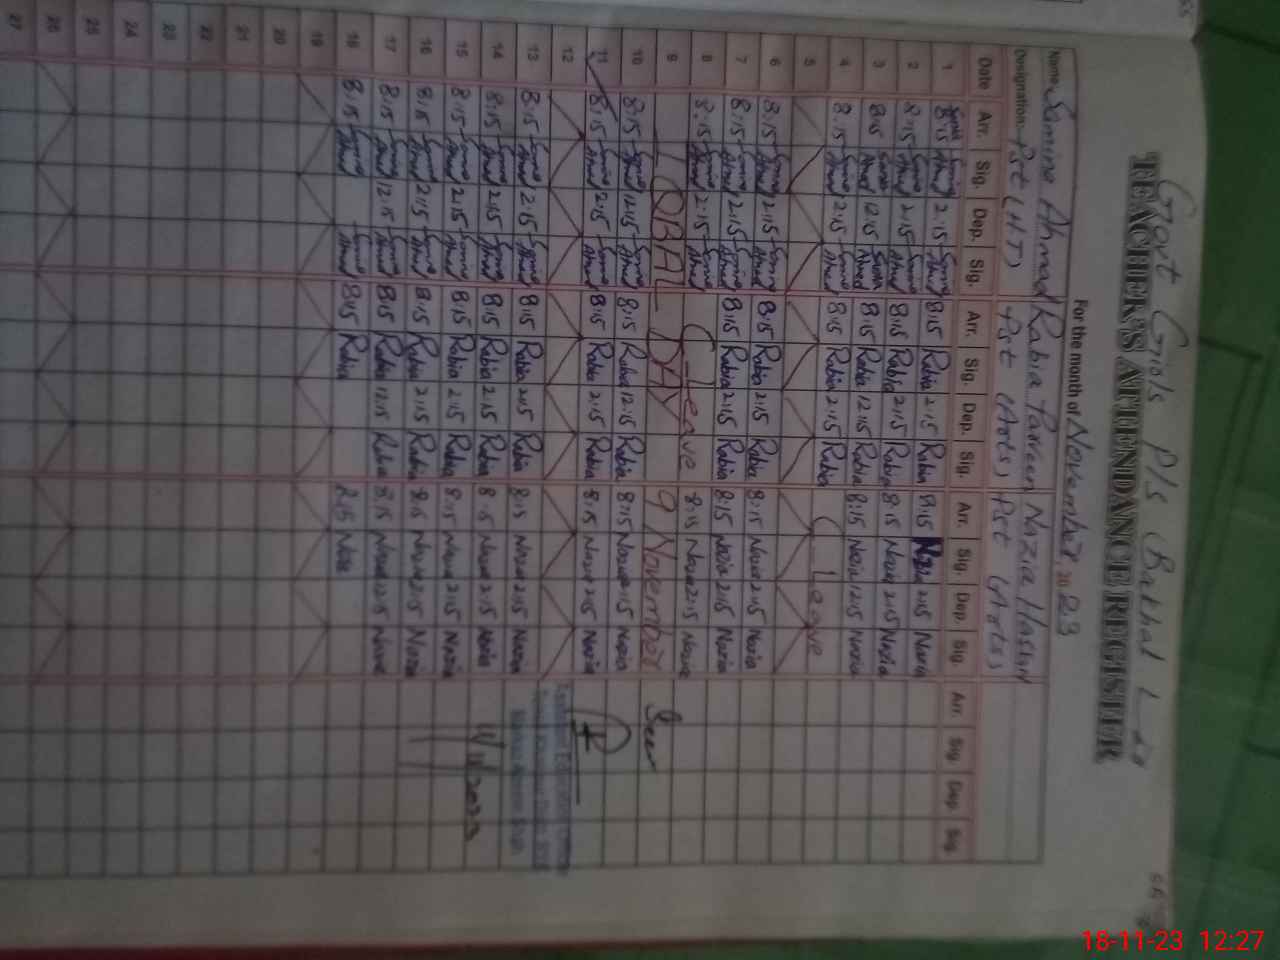 Govt Girls P/S Bakhal L
TEACHER'S ATTENDANCE REGISTER
For the month of November, 2023
Name Samina Ahmad Rabia Parveen Nazia Hassan
Designation Pst (H.T) Pst (Arts) Pst (Arts)
Date Arr. Sig. Dep. Sig. Arr. Sig. Dep. Sig. Arr. Sig. Dep. Sig. Arr. Sig. Dep. Sig.
1 8:15 Samina Ahmad 2:15 Samina Ahmad 8:15 Rabia 2:15 Rabia 8:15 Nazia 2:15 Nazia
2 8:15 Samina Ahmad 2:15 Samina Ahmad 8:15 Rabia 2:15 Rabia 8:15 Nazia 2:15 Nazia
3 8:15 Samina Ahmad 12:15 Samina Ahmad 8:15 Rabia 12:15 Rabia 8:15 Nazia 12:15 Nazia
4 8:15 Samina Ahmad 2:15 Samina Ahmad 8:15 Rabia 2:15 Rabia C-Leave
5
6 8:15 Samina Ahmad 2:15 Samina Ahmad 8:15 Rabia 2:15 Rabia 8:15 Nazia 2:15 Nazia
7 8:15 Samina Ahmad 2:15 Samina Ahmad 8:15 Rabia 2:15 Rabia 8:15 Nazia 2:15 Nazia
8 8:15 Samina Ahmad 2:15 Samina Ahmad C-Leave 8:15 Nazia 2:15 Nazia
9 IQBAL DAY 9 November
10 8:15 Samina Ahmad 12:15 Samina Ahmad 8:15 Rabia 12:15 Rabia 8:15 Nazia 12:15 Nazia Seen
11 8:15 Samina Ahmad 2:15 Samina Ahmad 8:15 Rabia 2:15 Rabia 8:15 Nazia 2:15 Nazia
12
13 8:15 Samina Ahmad 2:15 Samina Ahmad 8:15 Rabia 2:15 Rabia 8:15 Nazia 2:15 Nazia
14 8:15 Samina Ahmad 2:15 Samina Ahmad 8:15 Rabia 2:15 Rabia 8:15 Nazia 2:15 Nazia 11/11/2023
15 8:15 Samina Ahmad 2:15 Samina Ahmad 8:15 Rabia 2:15 Rabia 8:15 Nazia 2:15 Nazia
16 8:15 Samina Ahmad 2:15 Samina Ahmad 8:15 Rabia 2:15 Rabia 8:15 Nazia 2:15 Nazia
17 8:15 Samina Ahmad 12:15 Samina Ahmad 8:15 Rabia 12:15 Rabia 8:15 Nazia 12:15 Nazia
18 8:15 Samina Ahmad Samina Ahmad 8:15 Rabia 8:15 Nazia
19
20
21
22
23
24
25
26
27
18-11-23 12:27